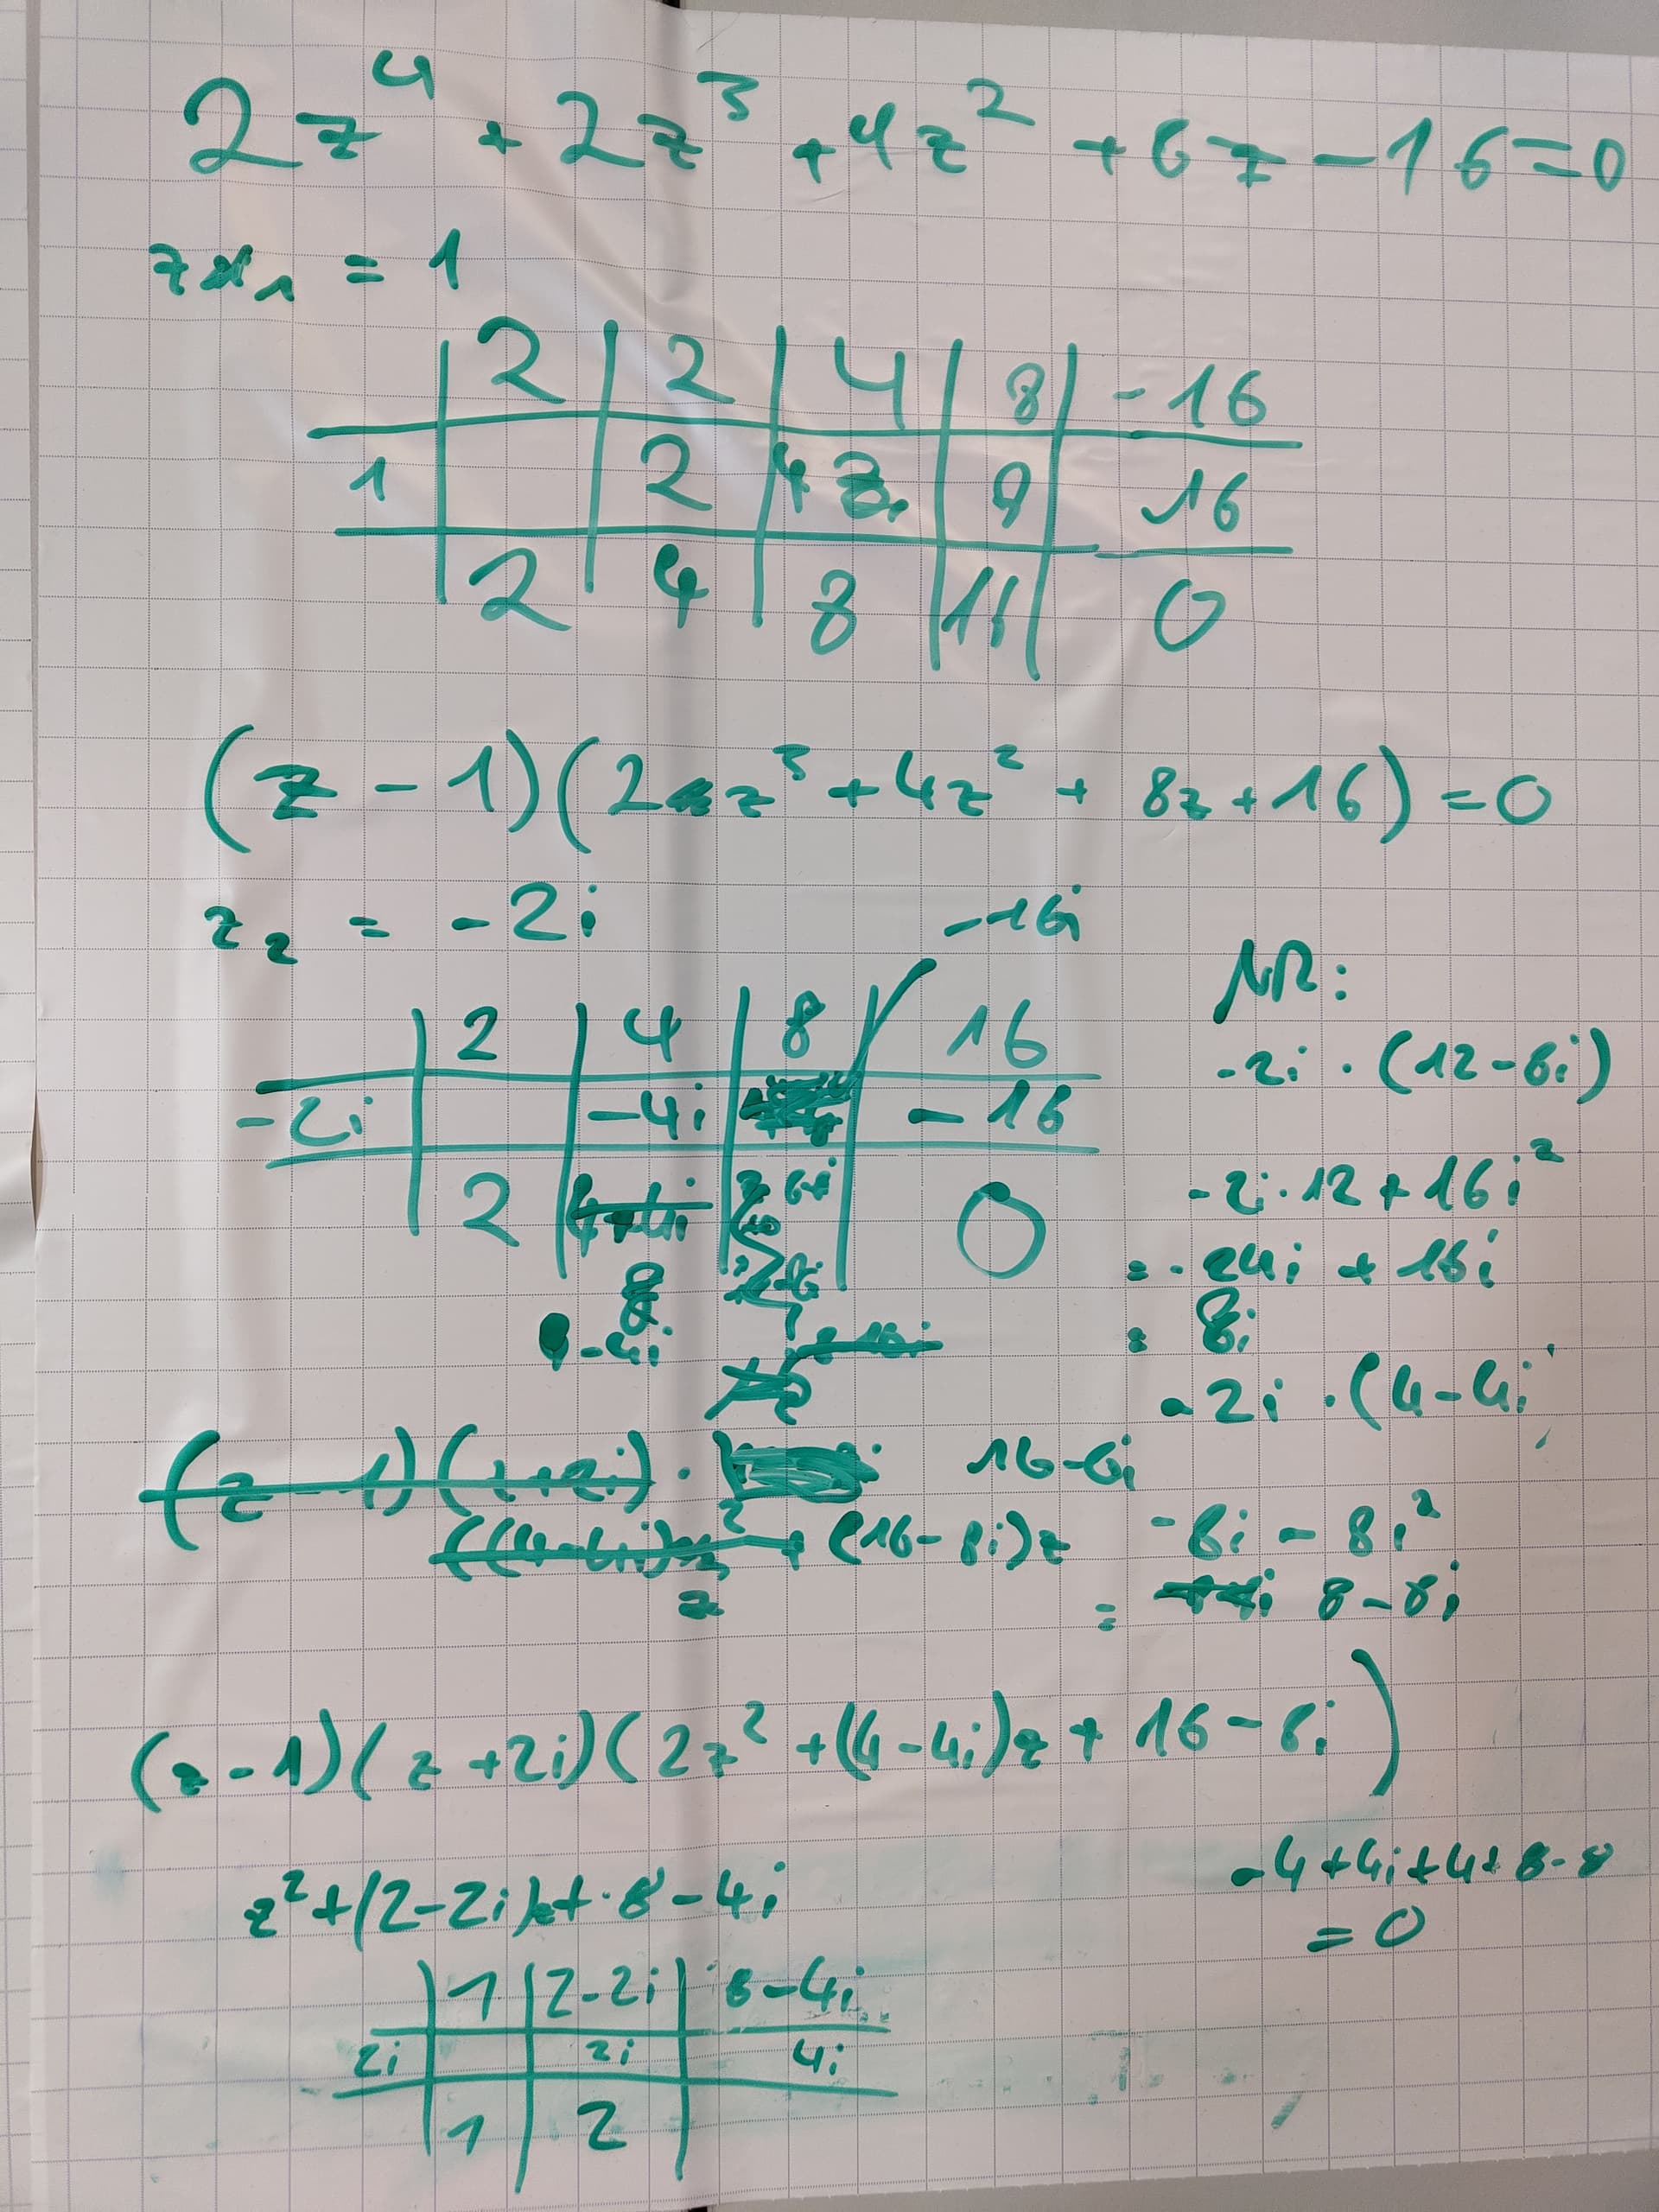 2z⁴ + 2z³ + 4z² + 6z - 16 = 0
z₁ = 1
2 | 2 | 4 | 8 | -16
1 | | 2 | 4 | 8 | 16
2 | 4 | 8 | 16 | 0
(z - 1)(2z³ + 4z² + 8z + 16) = 0
z₂ = -2i
-16i
2 | 4 | 8 | 16
-2i | | -4i | | -16
2 | | | 0
4-4i
NR:
-2i · (12-8i)
-2i · 12 + 16i²
= -24i + 16i
= 8i
-2i · (4-4i
-8i - 8i²
= 8-8i
(z-1)(z+2i) ·
16-8i
+ (16-8i)z
(z-1)(z+2i)(2z² + (4-4i)z + 16-8i)
z² + (2-2i)z + 8-4i
-4+4i+4+8-8
= 0
1 | 2-2i | 8-4i
2i | | 2i | 4i
1 | 2 |